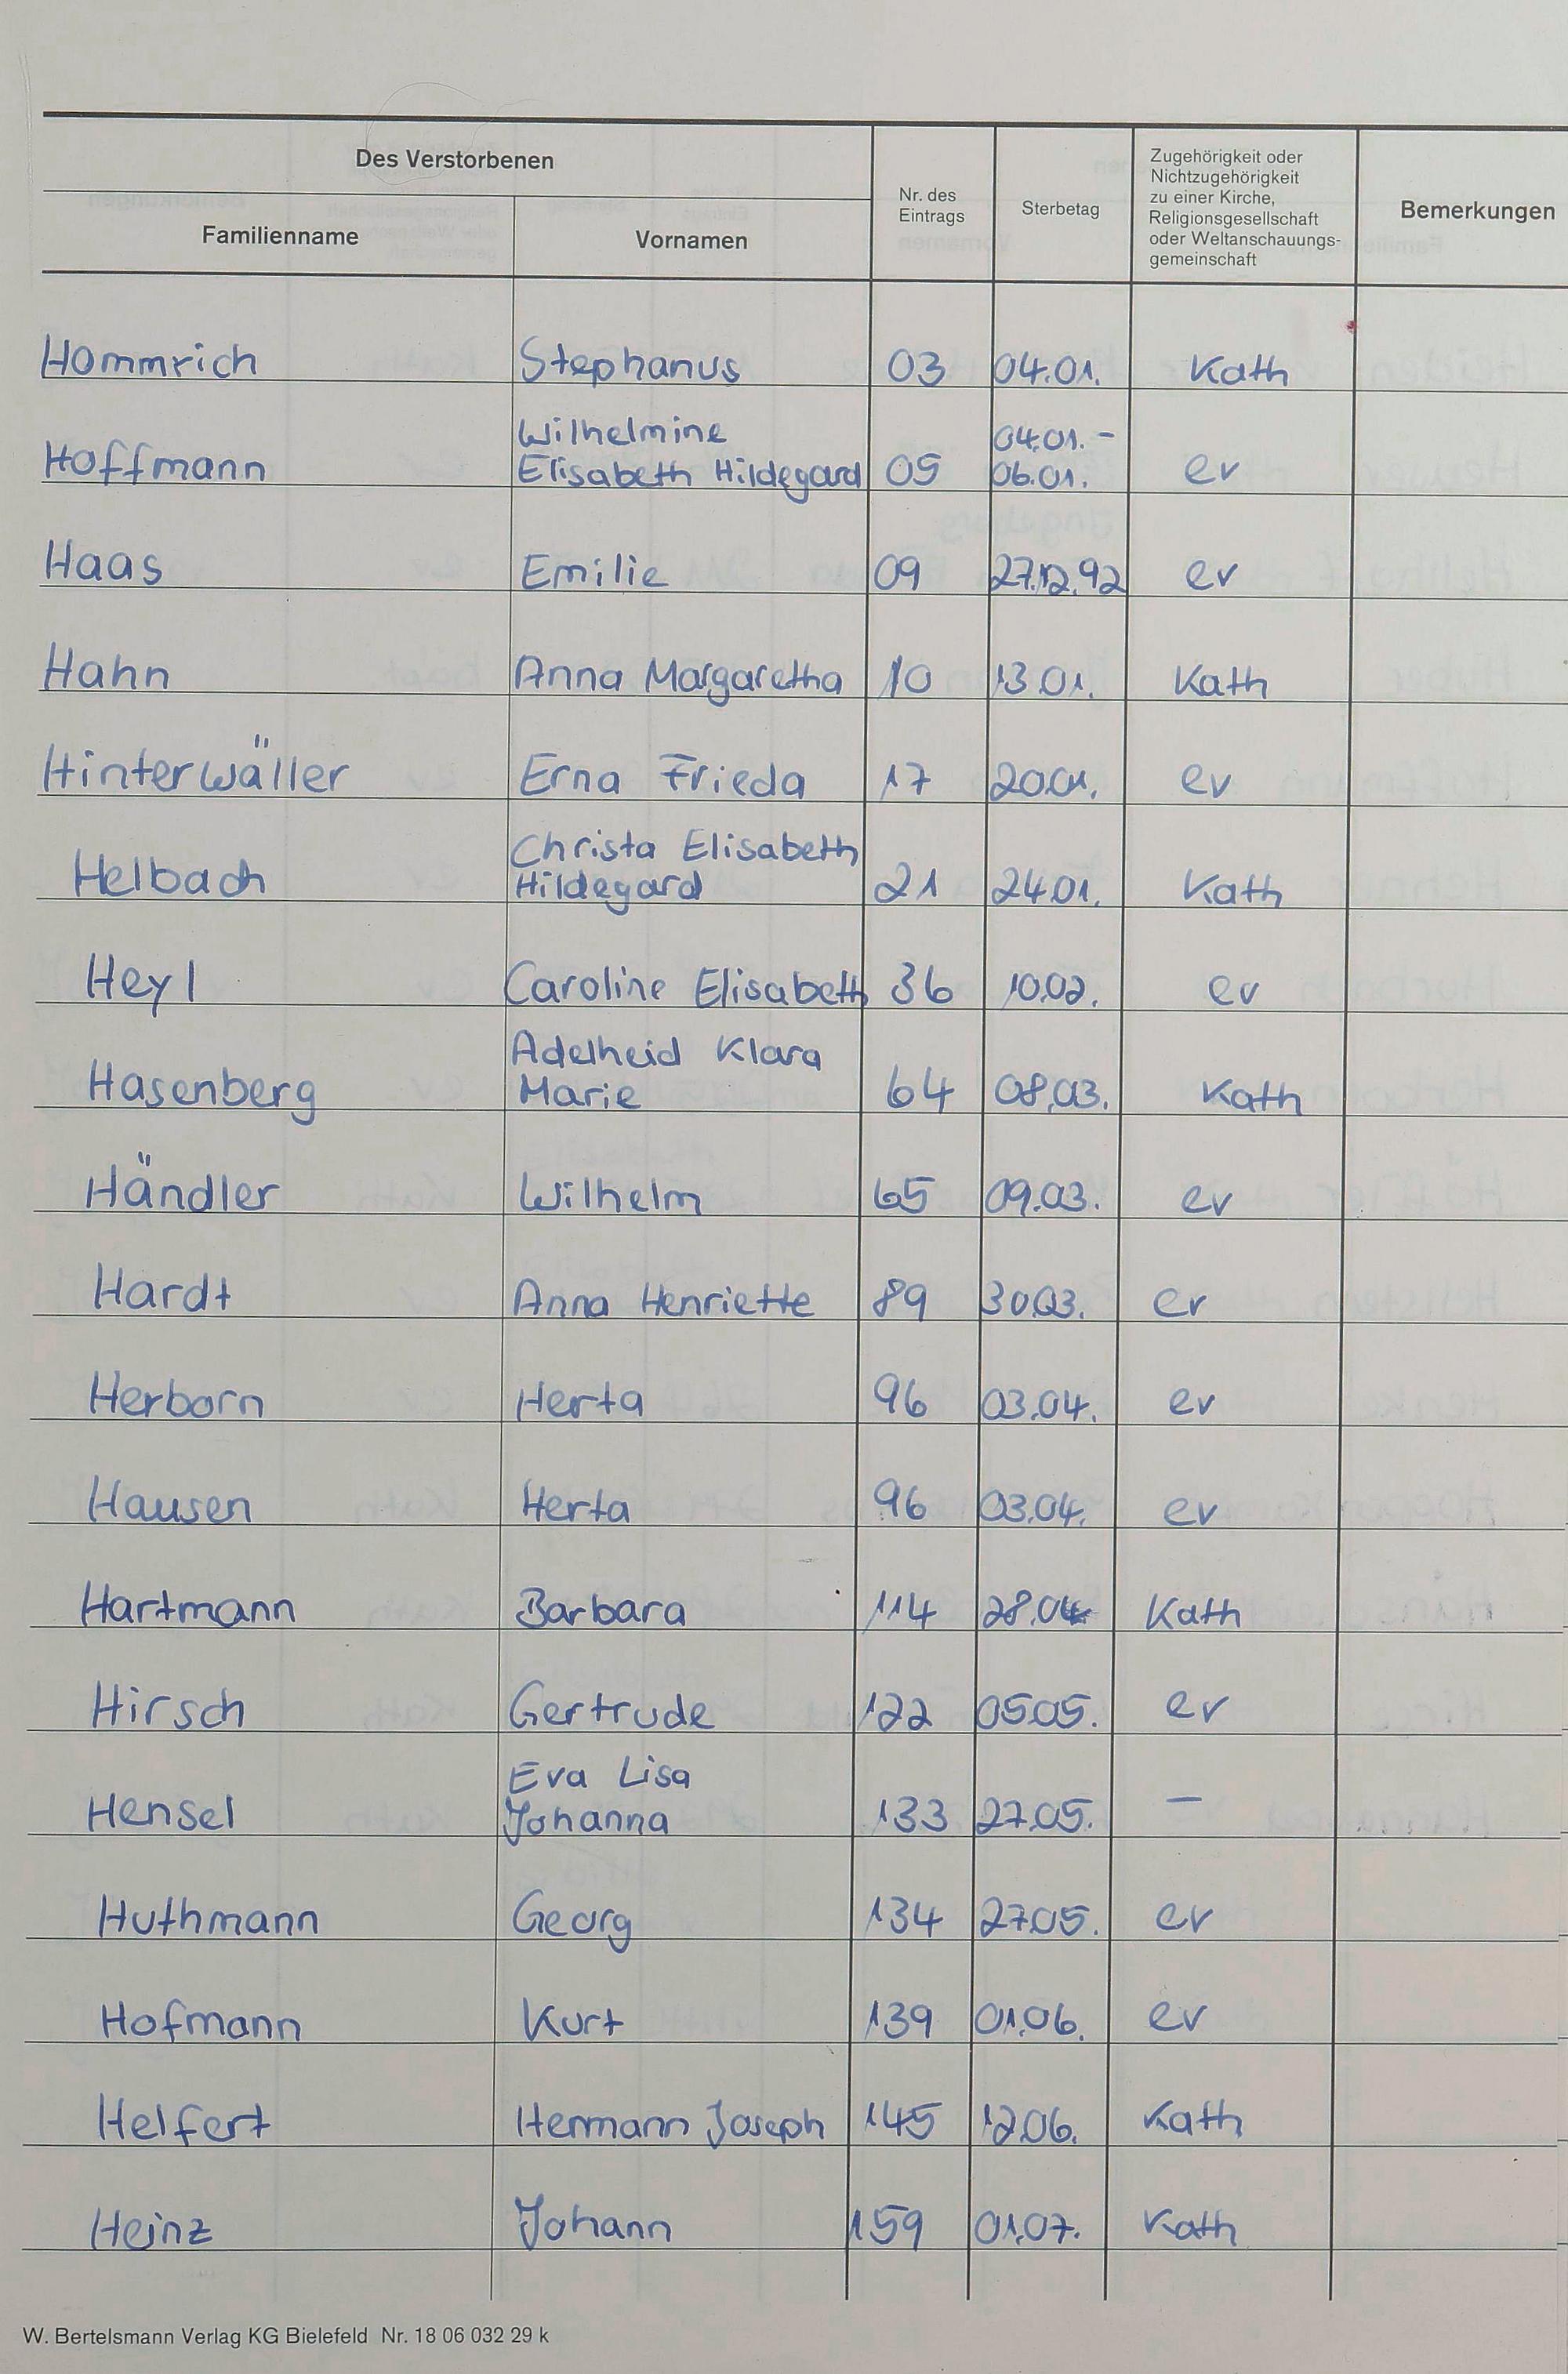 Des Verstorbenen
Familienname
Vornamen
Nr. des
Eintrags
Sterbetag
Zugehörigkeit oder
Nichtzugehörigkeit
zu einer Kirche,
Religionsgesellschaft
oder Weltanschauungs-
gemeinschaft
Bemerkungen
Hommrich Stephanus 03 04.01. Kath
Wilhelmine 04.01. -
Hoffmann Elisabeth Hildegard 05 06.01. ev
Haas Emilie 09 27.12.92 ev
Hahn Anna Margaretha 10 13.01. Kath
Hinterwäller Erna Frieda 17 20.01. ev
Christa Elisabeth
Helbach Hildegard 21 24.01. Kath
Heyl Caroline Elisabeth 36 10.02. ev
Adelheid Klara
Hasenberg Marie 64 08.03. Kath
Händler Wilhelm 65 09.03. ev
Hardt Anna Henriette 89 30.03. ev
Herborn Herta 96 03.04. ev
Hausen Herta 96 03.04. ev
Hartmann Barbara 114 28.04. Kath
Hirsch Gertrude 122 05.05. ev
Eva Lisa
Hensel Johanna 133 27.05. —
Huthmann Georg 134 27.05. ev
Hofmann Kurt 139 01.06. ev
Helfert Hermann Joseph 145 12.06. Kath
Heinz Johann 159 01.07. Kath
W. Bertelsmann Verlag KG Bielefeld Nr. 18 06 032 29 k